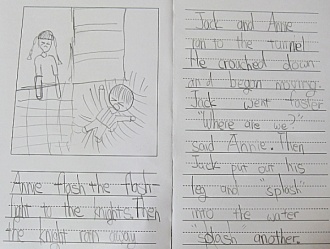 Annie flash the flash-
light to the knights. Then
the knight ran away
Jack and Annie
ran to the tunnel
He crouched down
and began moving.
Jack went faster
"Where are we?"
said Annie. Then
Jack put out his
leg and "splash"
into the water
"splash another.